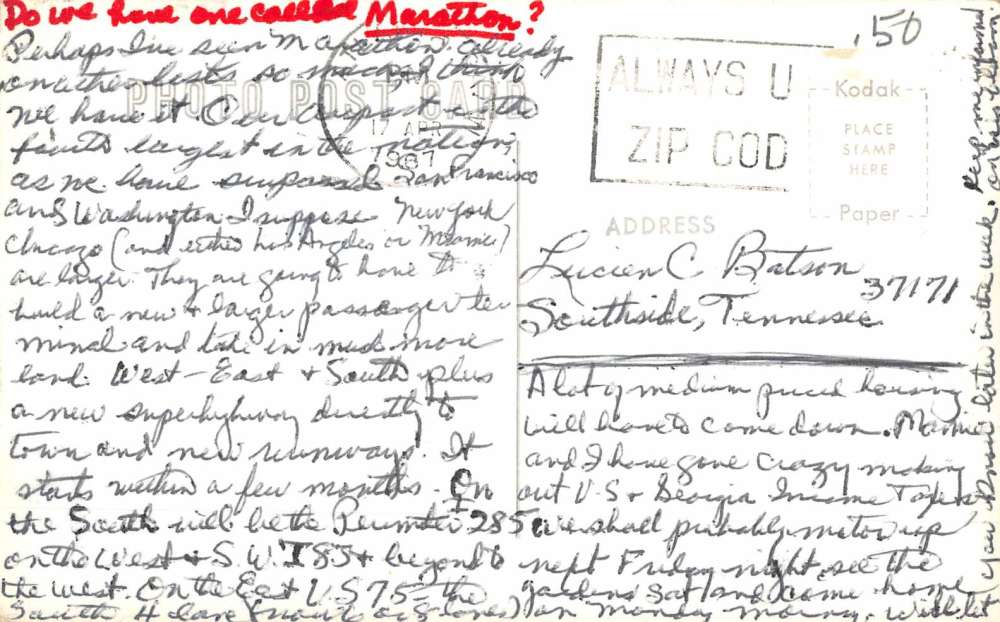 Do we have one called Marathon?
Perhaps I've seen Marathon already
on other lists so much I think
we have it. Our airport is the
fourth largest in the nation,
as we have surpassed San Francisco
and Washington. I suppose New York
Chicago (and either Los Angeles or Miami)
are larger. They are going to have to
build a new & larger passenger ter
minal and take in much more
land. West - East & South plus
a new superhighway directly to
town and new runways. It
starts within a few months. On
the South will be the Perimeter 285
on the West & S.W. I 85 & beyond to
the west. On the East U.S 75 - the
South
PHOTO POST CARD
17 APR
1967
ALWAYS U
ZIP COD
.50
Kodak
PLACE
STAMP
HERE
Paper
ADDRESS
Lucien C Batson
Southside, Tennessee
37171
A lot of medium priced housing
will have to come down. Mamie
and I have gone crazy making
out U-S & Georgia Income Taxes.
we shall probably motor up
next Friday night, see the
gardens Sat and come home
on Monday morning. Will let
you know later in the week.